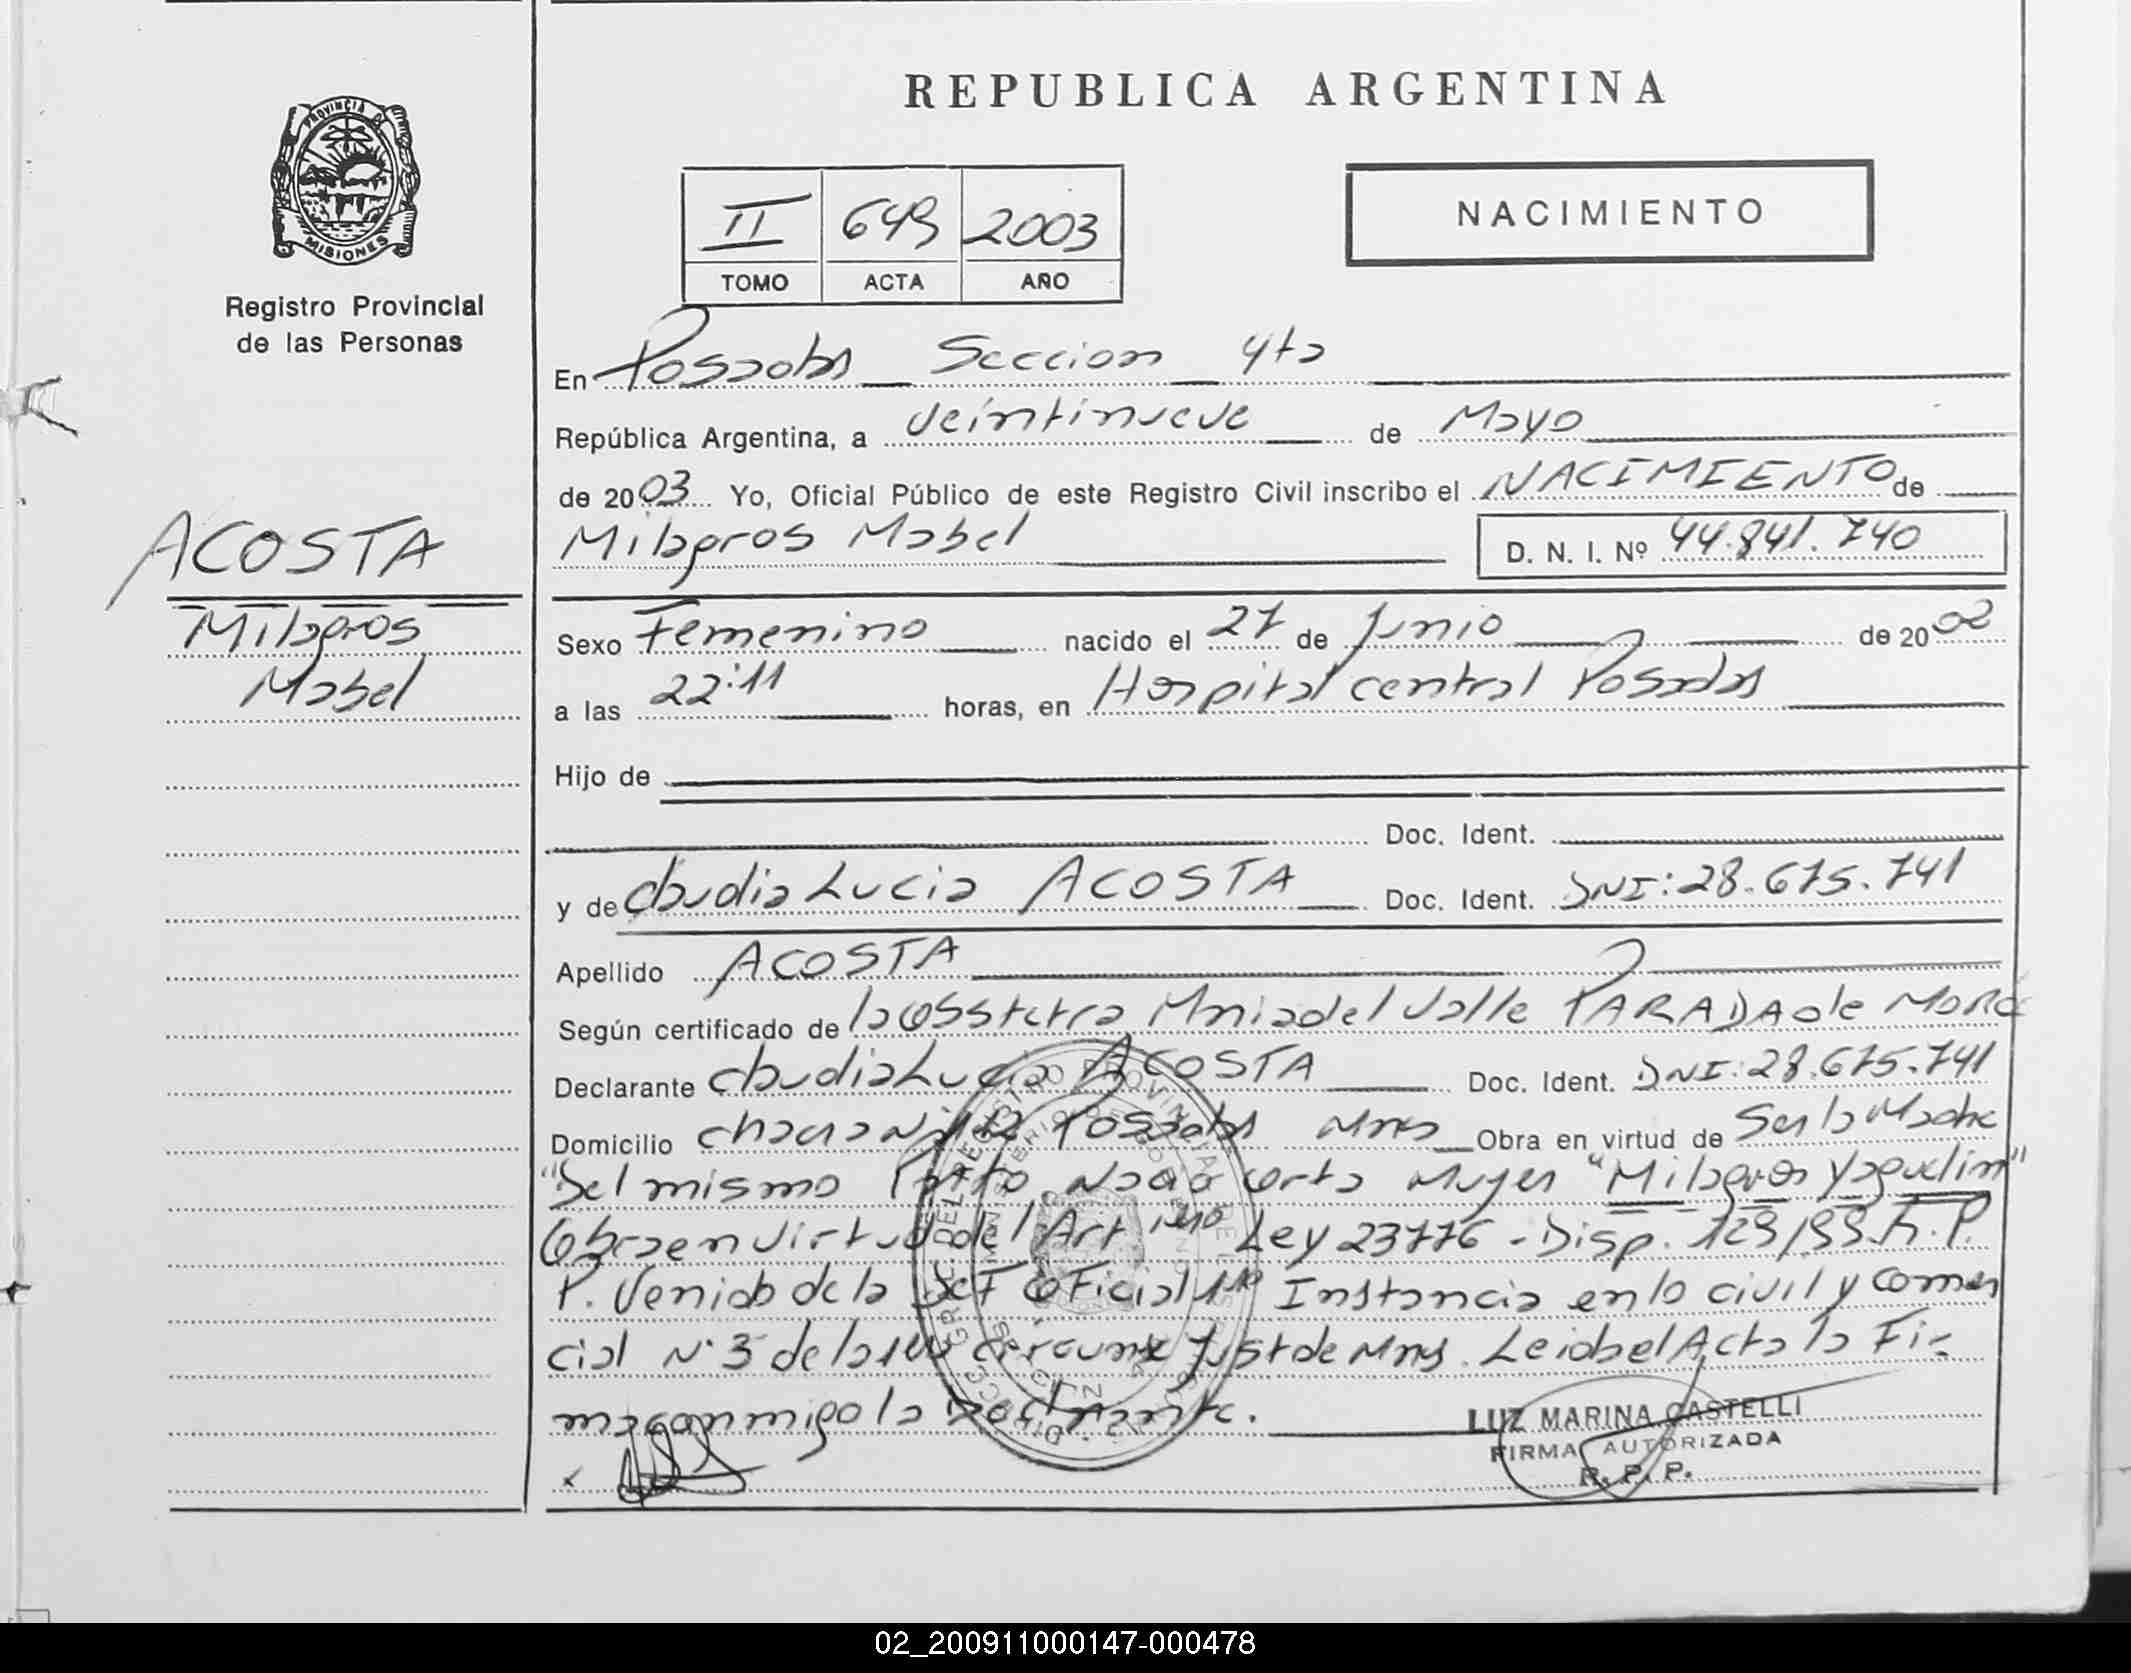 REPUBLICA ARGENTINA
PROVINCIA DE
MISIONES
Registro Provincial
de las Personas
II 649 2003
TOMO ACTA AÑO
NACIMIENTO
En Posadas Seccion 4ta
República Argentina, a veintinueve de Mayo
de 2003 Yo, Oficial Público de este Registro Civil inscribo el NACIMIENTO de
Milagros Mabel D. N. I. Nº 44.841.740
ACOSTA
Milagros
Mabel
Sexo Femenino nacido el 27 de Junio de 2002
a las 22:11 horas, en Hospital central Posadas
Hijo de
Doc. Ident.
y de Claudia Lucia ACOSTA Doc. Ident. DNI: 28.675.741
Apellido ACOSTA
Según certificado de la Obstetra Maria del Valle PARADA de
Declarante Claudia Lucia ACOSTA Doc. Ident. DNI: 28.675.741
Domicilio chacra Posadas Mnes Obra en virtud de Ser la Madre
"Del mismo Parto Nacio otra Mujer "Milagros Yaquelin"
Obra en virtud del Art Ley 23776 - Disp. 129/99. R. P.
P. Venida de la Def Oficial Instancia en lo civil y comer
cial N° 3 de la Just de Mnes. Leida el Acta la Fir
ma conmigo la Declarante.
LUZ MARINA CASTELLI
FIRMA AUTORIZADA
R. P. P.
02_200911000147-000478